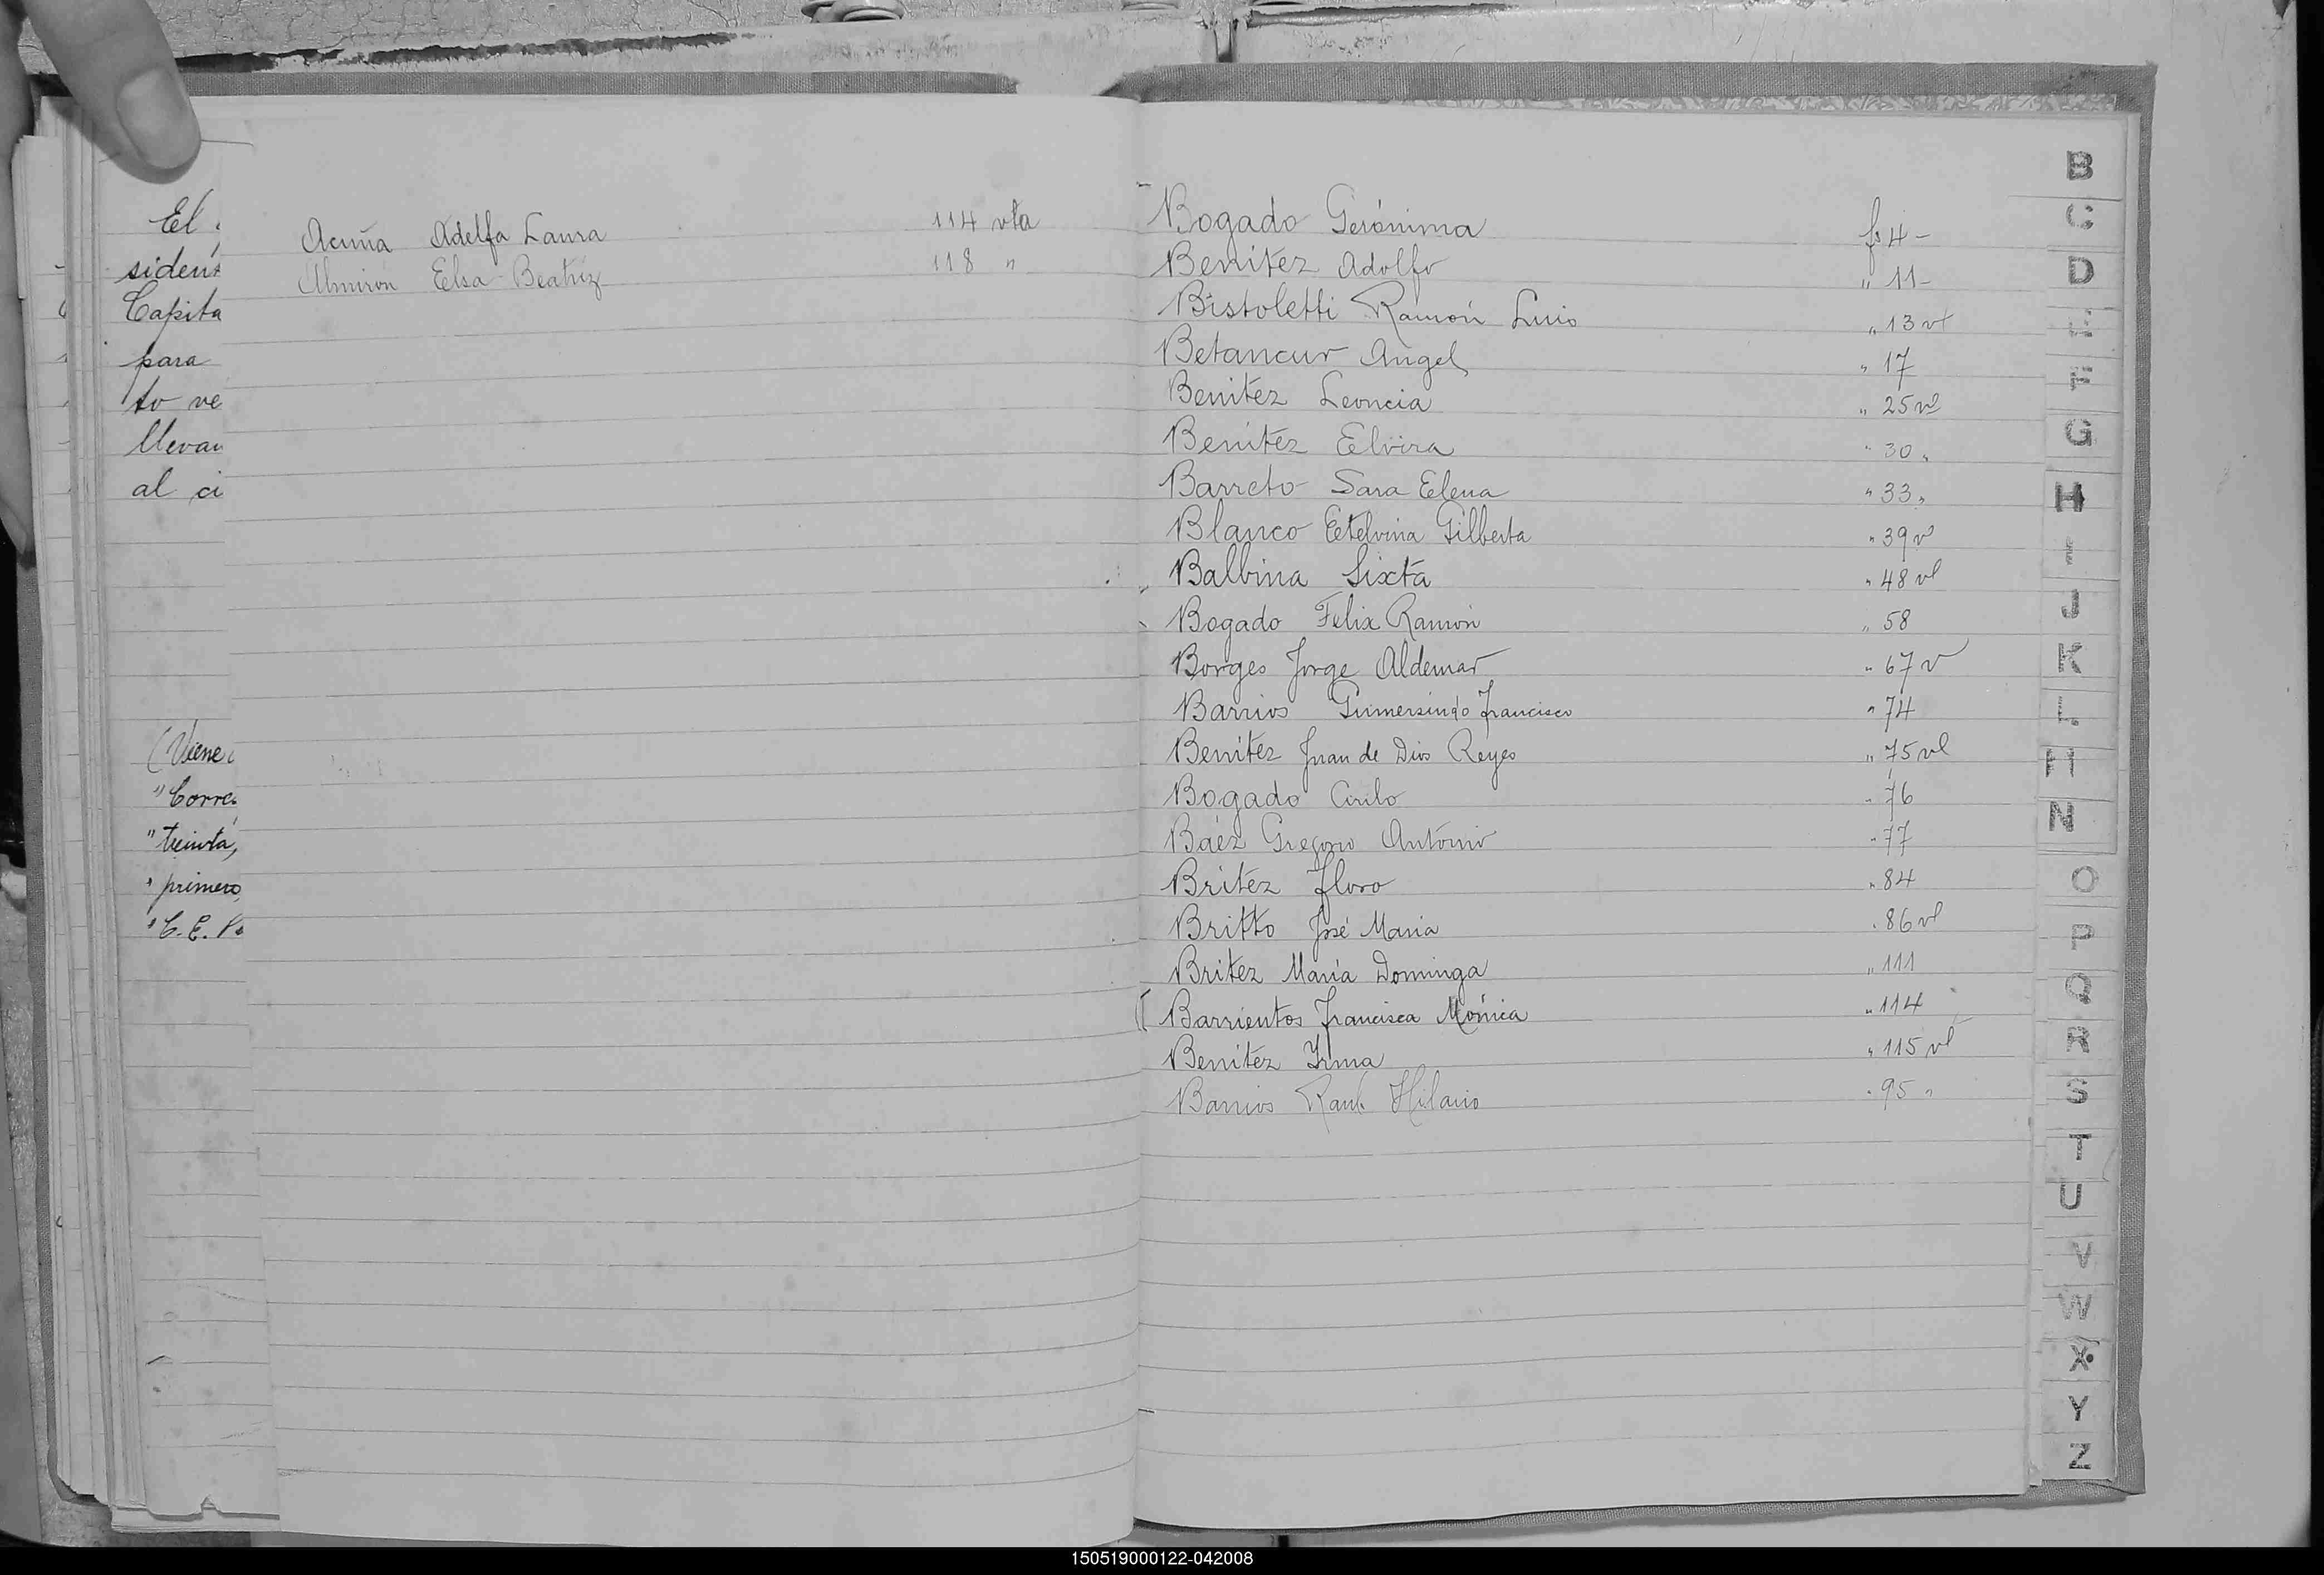 El
siden
Capita
para
to ve
llevan
al ci
(Viene
"Corre
"treinta,
"primero,
"C. E. P
Acuña Adelfa Laura 114 vta
Almirón Elsa Beatriz 118 "
Bogado Gerónima fs 4-
Benitez Adolfo " 11-
Bistoletti Ramón Luis " 13 vt
Betancur Angel " 17
Benitez Leoncia " 25 vº
Benitez Elvira " 30 "
Barreto Sara Elena " 33 "
Blanco Etelvina Gilberta " 39 v
Balbina Sixta " 48 vt
Bogado Felix Ramón " 58
Borges Jorge Aldemar " 67 v
Barrios Gumersindo Francisco " 74
Benítez Juan de Dios Reyes " 75 vt
Bogado Cirilo " 76
Báez Gregorio Antonio " 77
Britez Floro " 84
Britto José Maria " 86 vt
Britez María Dominga " 111
Barrientos Francisca Mónica " 114
Benitez Irma " 115 vt
Barrios Raul Hilario " 95 "
B
C
D
E
F
G
H
I
J
K
L
M
N
O
P
Q
R
S
T
U
V
W
X
Y
Z
150519000122-042008